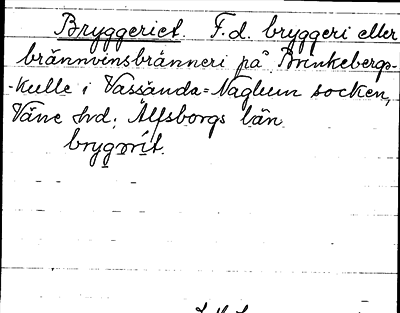 Bryggeriet. F.d. bryggeri eller
brännvinsbränneri på Brinkebergs-
-kulle i Vassända-Naglum socken,
Väne hd; Älfsborgs län
brygərít.